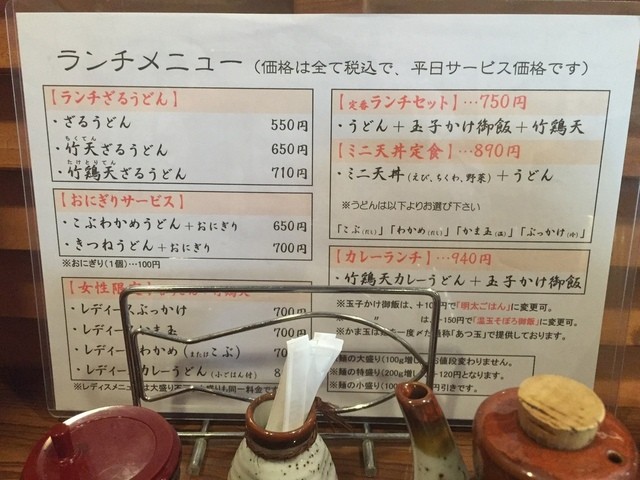 ランチメニュー（価格は全て税込で、平日サービス価格です）
【ランチざるうどん】
・ざるうどん 550円
ちくてん
・竹天ざるうどん 650円
たけとりてん
・竹鶏天ざるうどん 710円
【おにぎりサービス】
・こぶわかめうどん＋おにぎり 650円
・きつねうどん＋おにぎり 700円
※おにぎり(1個)…100円
【女性限定
・レディースぶっかけ 700
・レディースかま玉 700
・レディースわかめ(またはこぶ) 70
・レディースカレーうどん(小ごはん付) 8
※レディスメニューは大盛り も同一料金です
【定番ランチセット】…750円
・うどん＋玉子かけ御飯＋竹鶏天
【ミニ天丼定食】…890円
・ミニ天丼(えび、ちくわ、野菜)＋うどん
※うどんは以下よりお選び下さい
「こぶ(だし)」「わかめ(だし)」「かま玉(温)」「ぶっかけ(冷)」
【カレーランチ】…940円
・竹鶏天カレーうどん＋玉子かけ御飯
※玉子かけ御飯は、＋100円で「明太ごはん」に変更可。
〃 は、＋150円で「温玉そぼろ御飯」に変更可。
※かま玉は 一度〆た 通称「あつ玉」で提供しております。
※麺の大盛り(100g増し) お値段変わりません。
※麺の特盛り(200g増し) ＋120円となります。
※麺の小盛り(100g 円引きです。